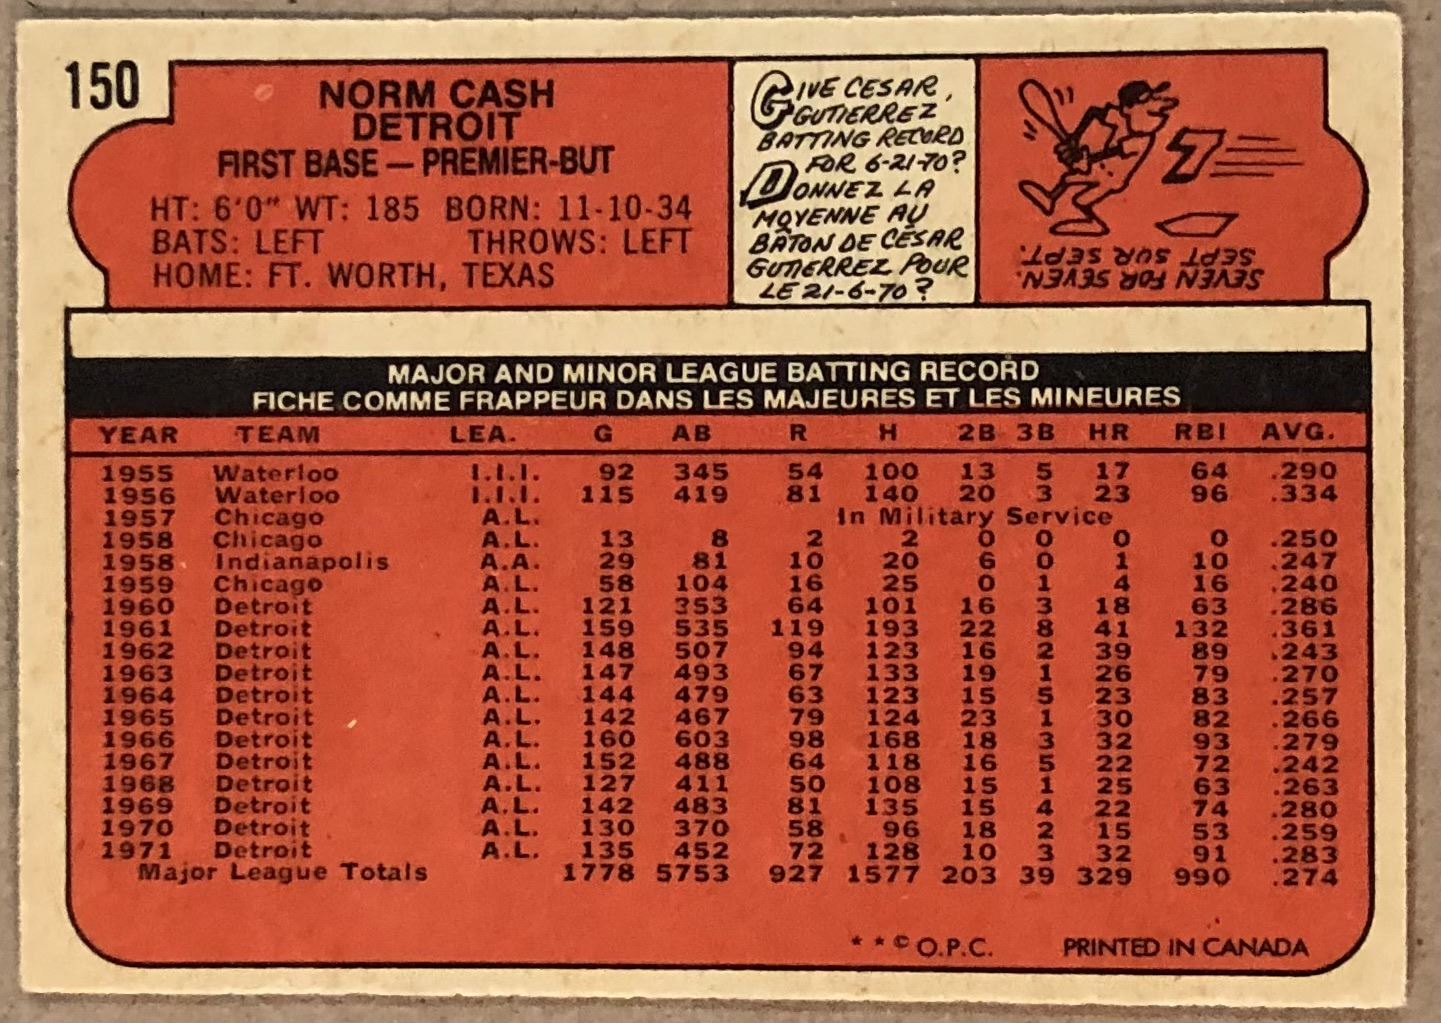 150
NORM CASH
DETROIT
FIRST BASE — PREMIER-BUT
HT: 6'0" WT: 185 BORN: 11-10-34
BATS: LEFT THROWS: LEFT
HOME: FT. WORTH, TEXAS
GIVE CESAR
GUTIERREZ
BATTING RECORD
FOR 6-21-70?
DONNEZ LA
MOYENNE AU
BÂTON DE CÉSAR
GUTIERREZ POUR
LE 21-6-70?
7
SEVEN FOR SEVEN.
SEPT SUR SEPT.
MAJOR AND MINOR LEAGUE BATTING RECORD
FICHE COMME FRAPPEUR DANS LES MAJEURES ET LES MINEURES
YEAR TEAM LEA. G AB R H 2B 3B HR RBI AVG.
1955 Waterloo I.I.I. 92 345 54 100 13 5 17 64 .290
1956 Waterloo I.I.I. 115 419 81 140 20 3 23 96 .334
1957 Chicago A.L. In Military Service
1958 Chicago A.L. 13 8 2 2 0 0 0 0 .250
1958 Indianapolis A.A. 29 81 10 20 6 0 1 10 .247
1959 Chicago A.L. 58 104 16 25 0 1 4 16 .240
1960 Detroit A.L. 121 353 64 101 16 3 18 63 .286
1961 Detroit A.L. 159 535 119 193 22 8 41 132 .361
1962 Detroit A.L. 148 507 94 123 16 2 39 89 .243
1963 Detroit A.L. 147 493 67 133 19 1 26 79 .270
1964 Detroit A.L. 144 479 63 123 15 5 23 83 .257
1965 Detroit A.L. 142 467 79 124 23 1 30 82 .266
1966 Detroit A.L. 160 603 98 168 18 3 32 93 .279
1967 Detroit A.L. 152 488 64 118 16 5 22 72 .242
1968 Detroit A.L. 127 411 50 108 15 1 25 63 .263
1969 Detroit A.L. 142 483 81 135 15 4 22 74 .280
1970 Detroit A.L. 130 370 58 96 18 2 15 53 .259
1971 Detroit A.L. 135 452 72 128 10 3 32 91 .283
Major League Totals 1778 5753 927 1577 203 39 329 990 .274
* * © O.P.C. PRINTED IN CANADA